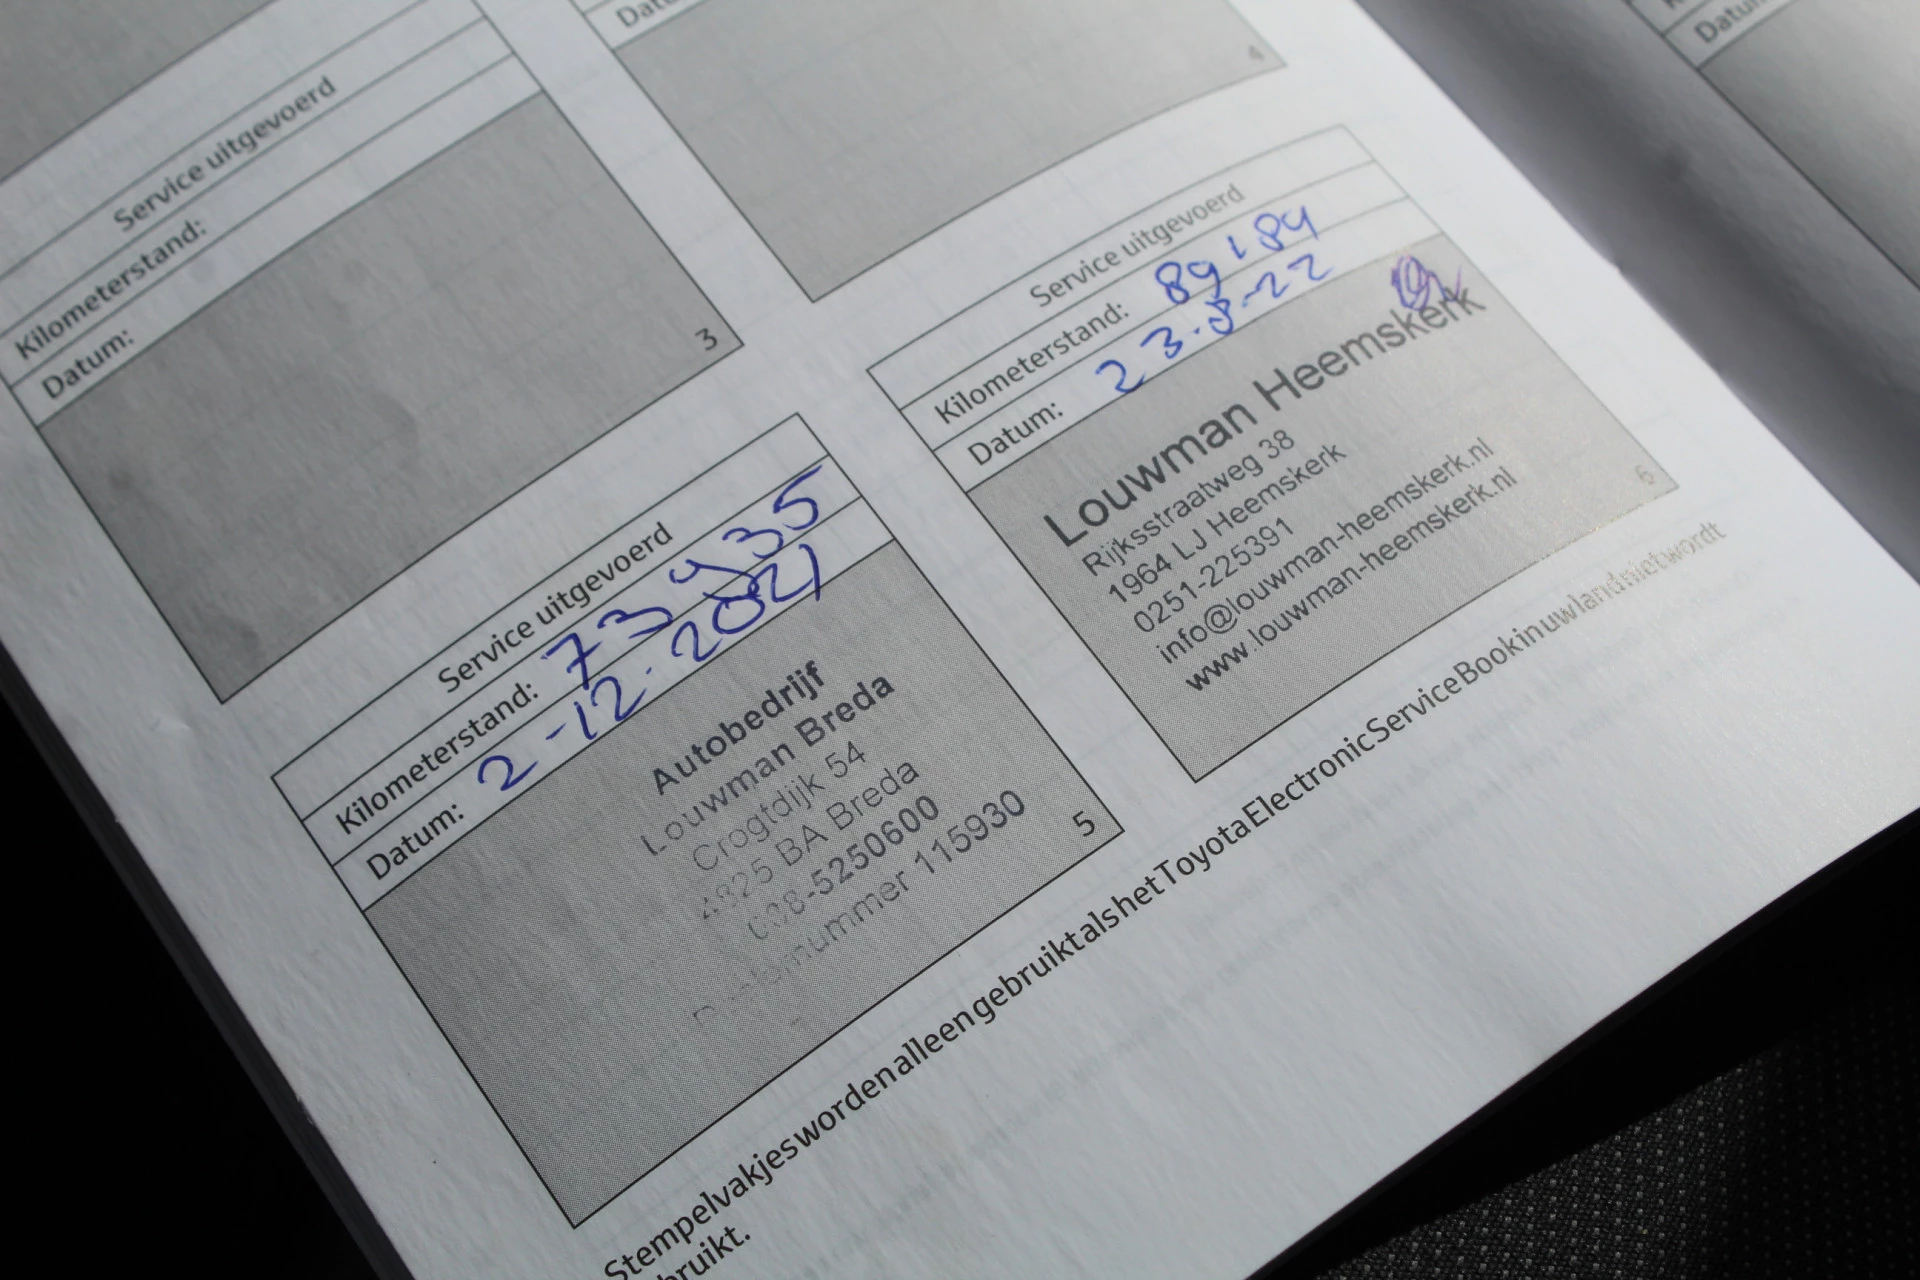 Service uitgevoerd
Kilometerstand:
Datum:
3
4
Service uitgevoerd
Kilometerstand: 73935
Datum: 2-12-2021
Autobedrijf
Louwman Breda
Crogtdijk 54
4825 BA Breda
088-5250600
115930
5
Service uitgevoerd
Kilometerstand: 89184
Datum: 23-8-22
Louwman Heemskerk
Rijksstraatweg 38
1964 LJ Heemskerk
0251-225391
info@louwman-heemskerk.nl
www.louwman-heemskerk.nl
6
Stempelvakjes worden alleen gebruikt als het Toyota Electronic Service Book in uw land niet wordt
bruikt.
Datum